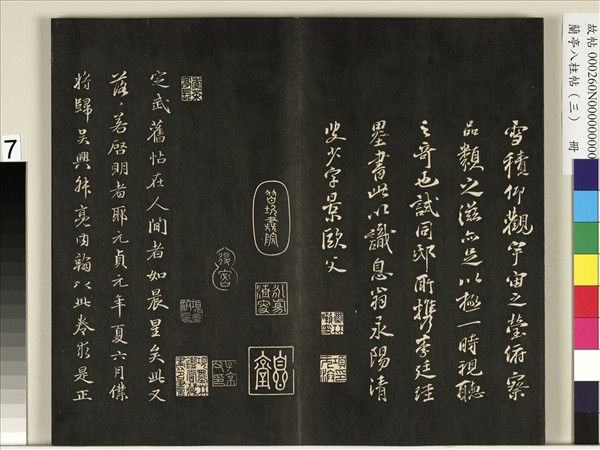 故帖 000260N000000000
蘭亭八柱帖（三） 冊
雪積仰觀宇宙之瑩俯察
品類之滋亦足以極一時視聽
之奇也試同邸所攜李廷珪
墨書此以識息翁永陽清
叟少字景歐父
定武舊帖在人間者如晨星矣此又
落々若啓明者耶元貞元年夏六月僕
將歸吳興叔亮内翰以此卷求是正
7